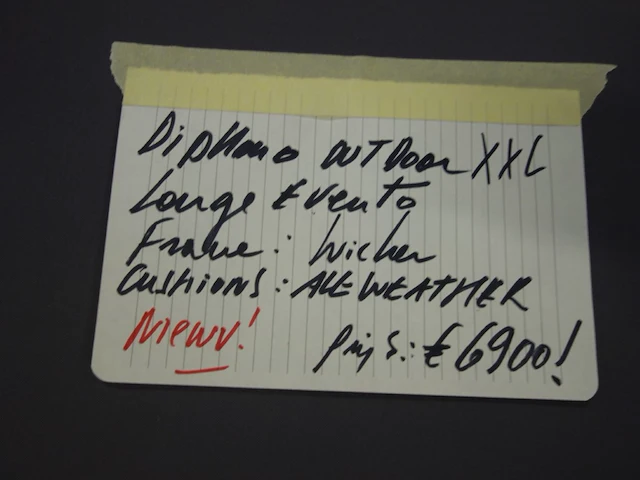 Diphano OUTDOOR XXL
Lounge Evento
Frame: Wicker
Cushions: ALL WEATHER
Nieuw! Prijs: € 6900!